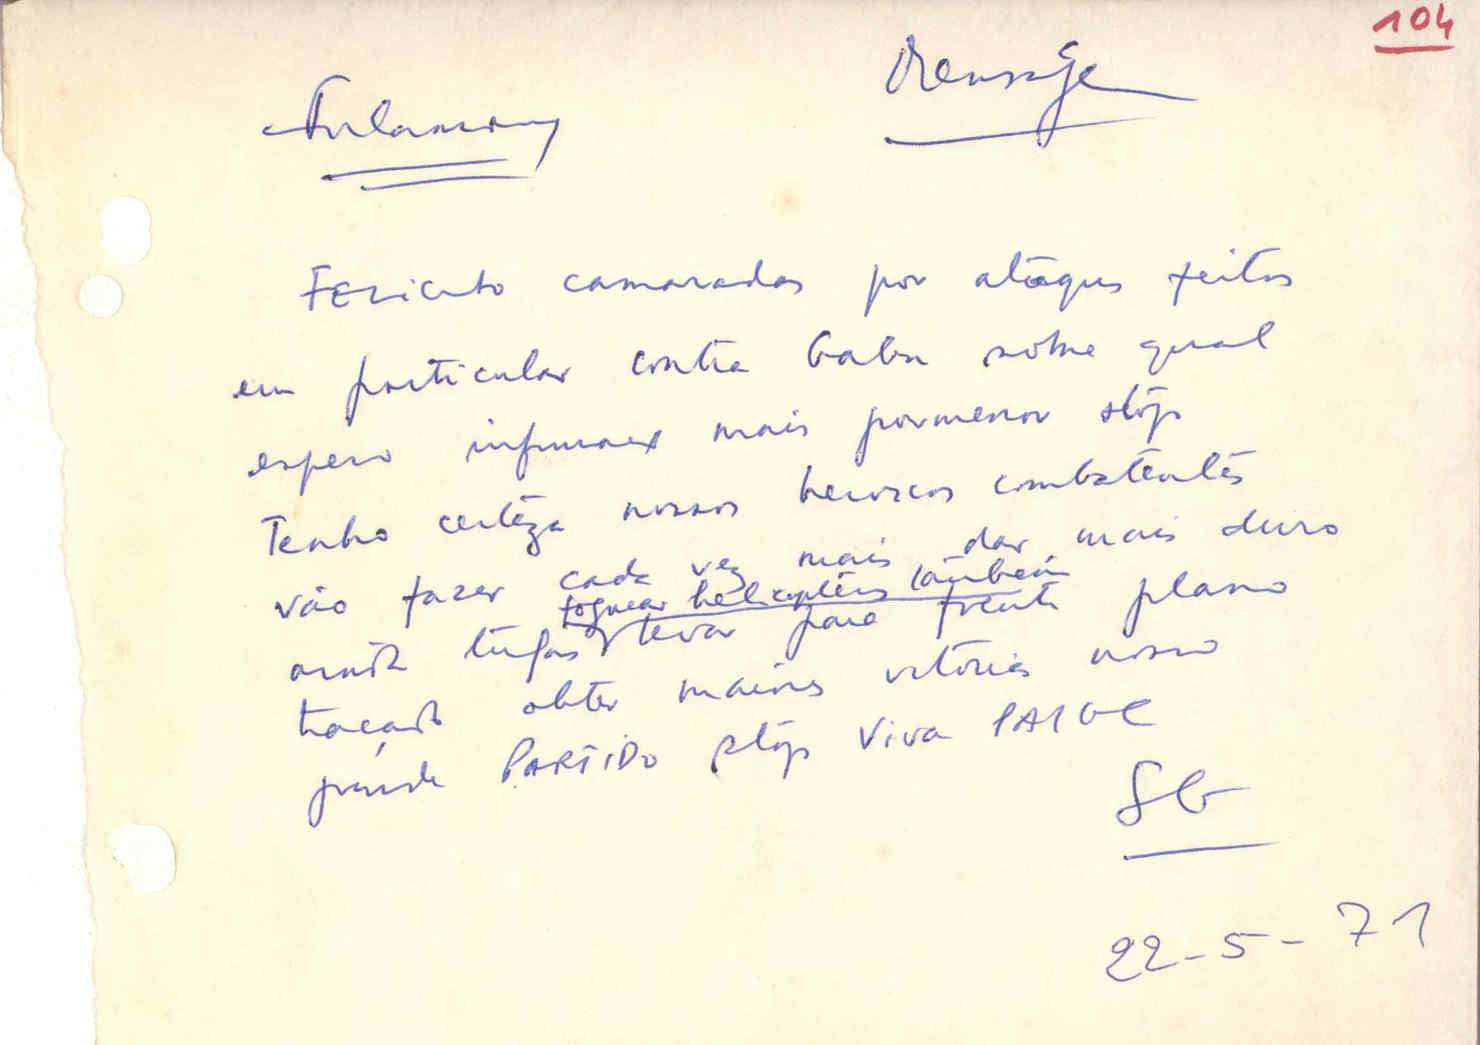 104
Mensagem
Felicito camaradas por ataques feitos
em particular contra Gabu sobre qual
espero informaes mais pormenor stop
Tenho certeza nossos heroicos combatentes
vão fazer cada vez mais dar mais duro
foguear helicopteros também
tugas levar para frente plano
traçado obter maiores vitórias nosso
grande PARTIDO stop Viva PAIGC
SG
22-5-71